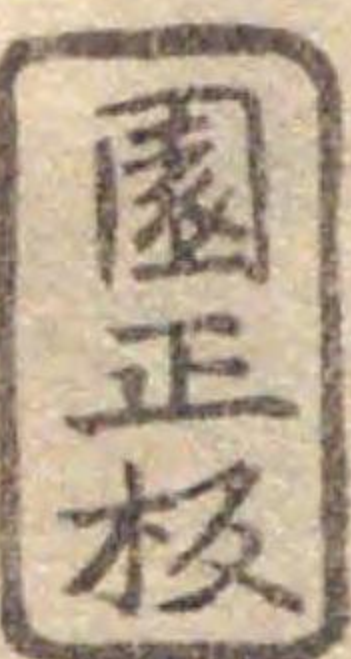 園正板